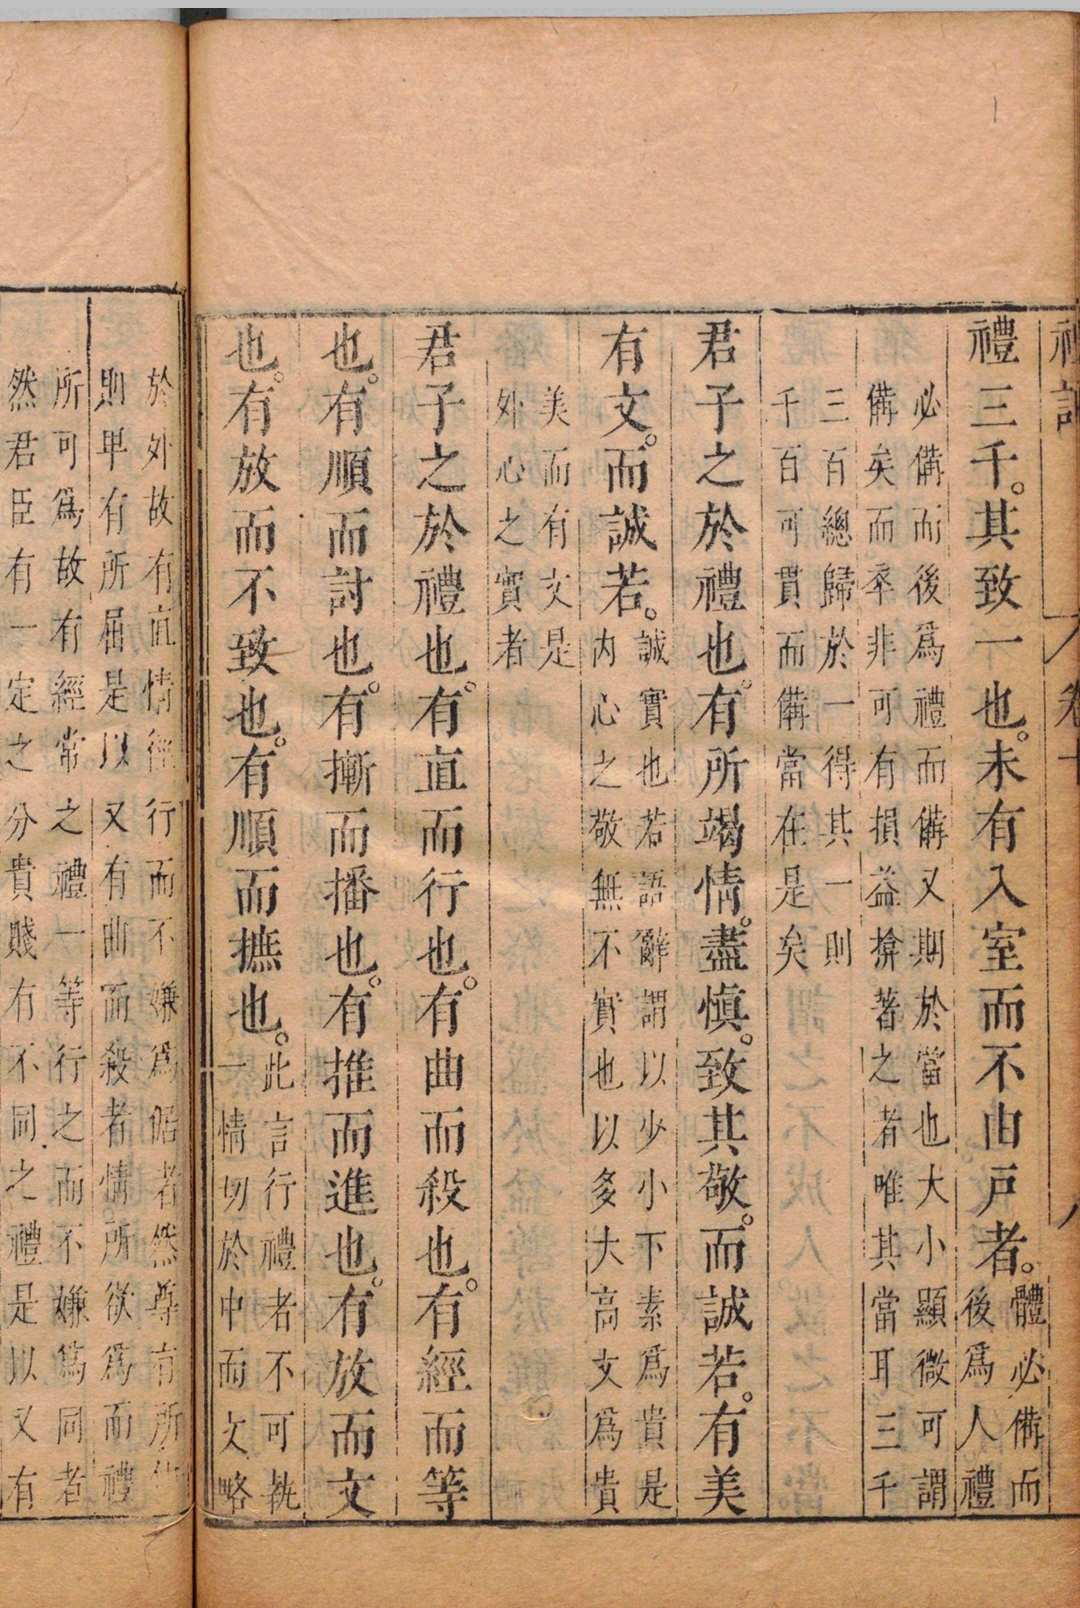 禮三千。其致一也。未有入室而不由戶者。體必備而
後爲人禮
必備而後爲禮而備又期於當也大小顯微可謂
備矣而卒非可有損益揜著之者唯其當耳三千
三百總歸於一得其一則
千百可貫而備當在是矣
君子之於禮也。有所竭情。盡慎。致其敬。而誠若。有美
有文。而誠若。誠實也若語辭謂以少小下素爲貴是
內心之敬無不實也以多大高文爲貴
美而有文是
外心之實者
君子之於禮也。有直而行也。有曲而殺也。有經而等
也。有順而討也。有摲而播也。有推而進也。有放而文
也。有放而不致也。有順而摭也。此言行禮者不可執
一情切於中而文略
於外故有直情徑行而不嫌爲倨者然尊有所
則卑有所屈是以又有曲而殺者情所欲爲而禮
所可爲故有經常之禮一等行之而不嫌爲同者
然君臣有一定之分貴賤有不同之禮是以又有